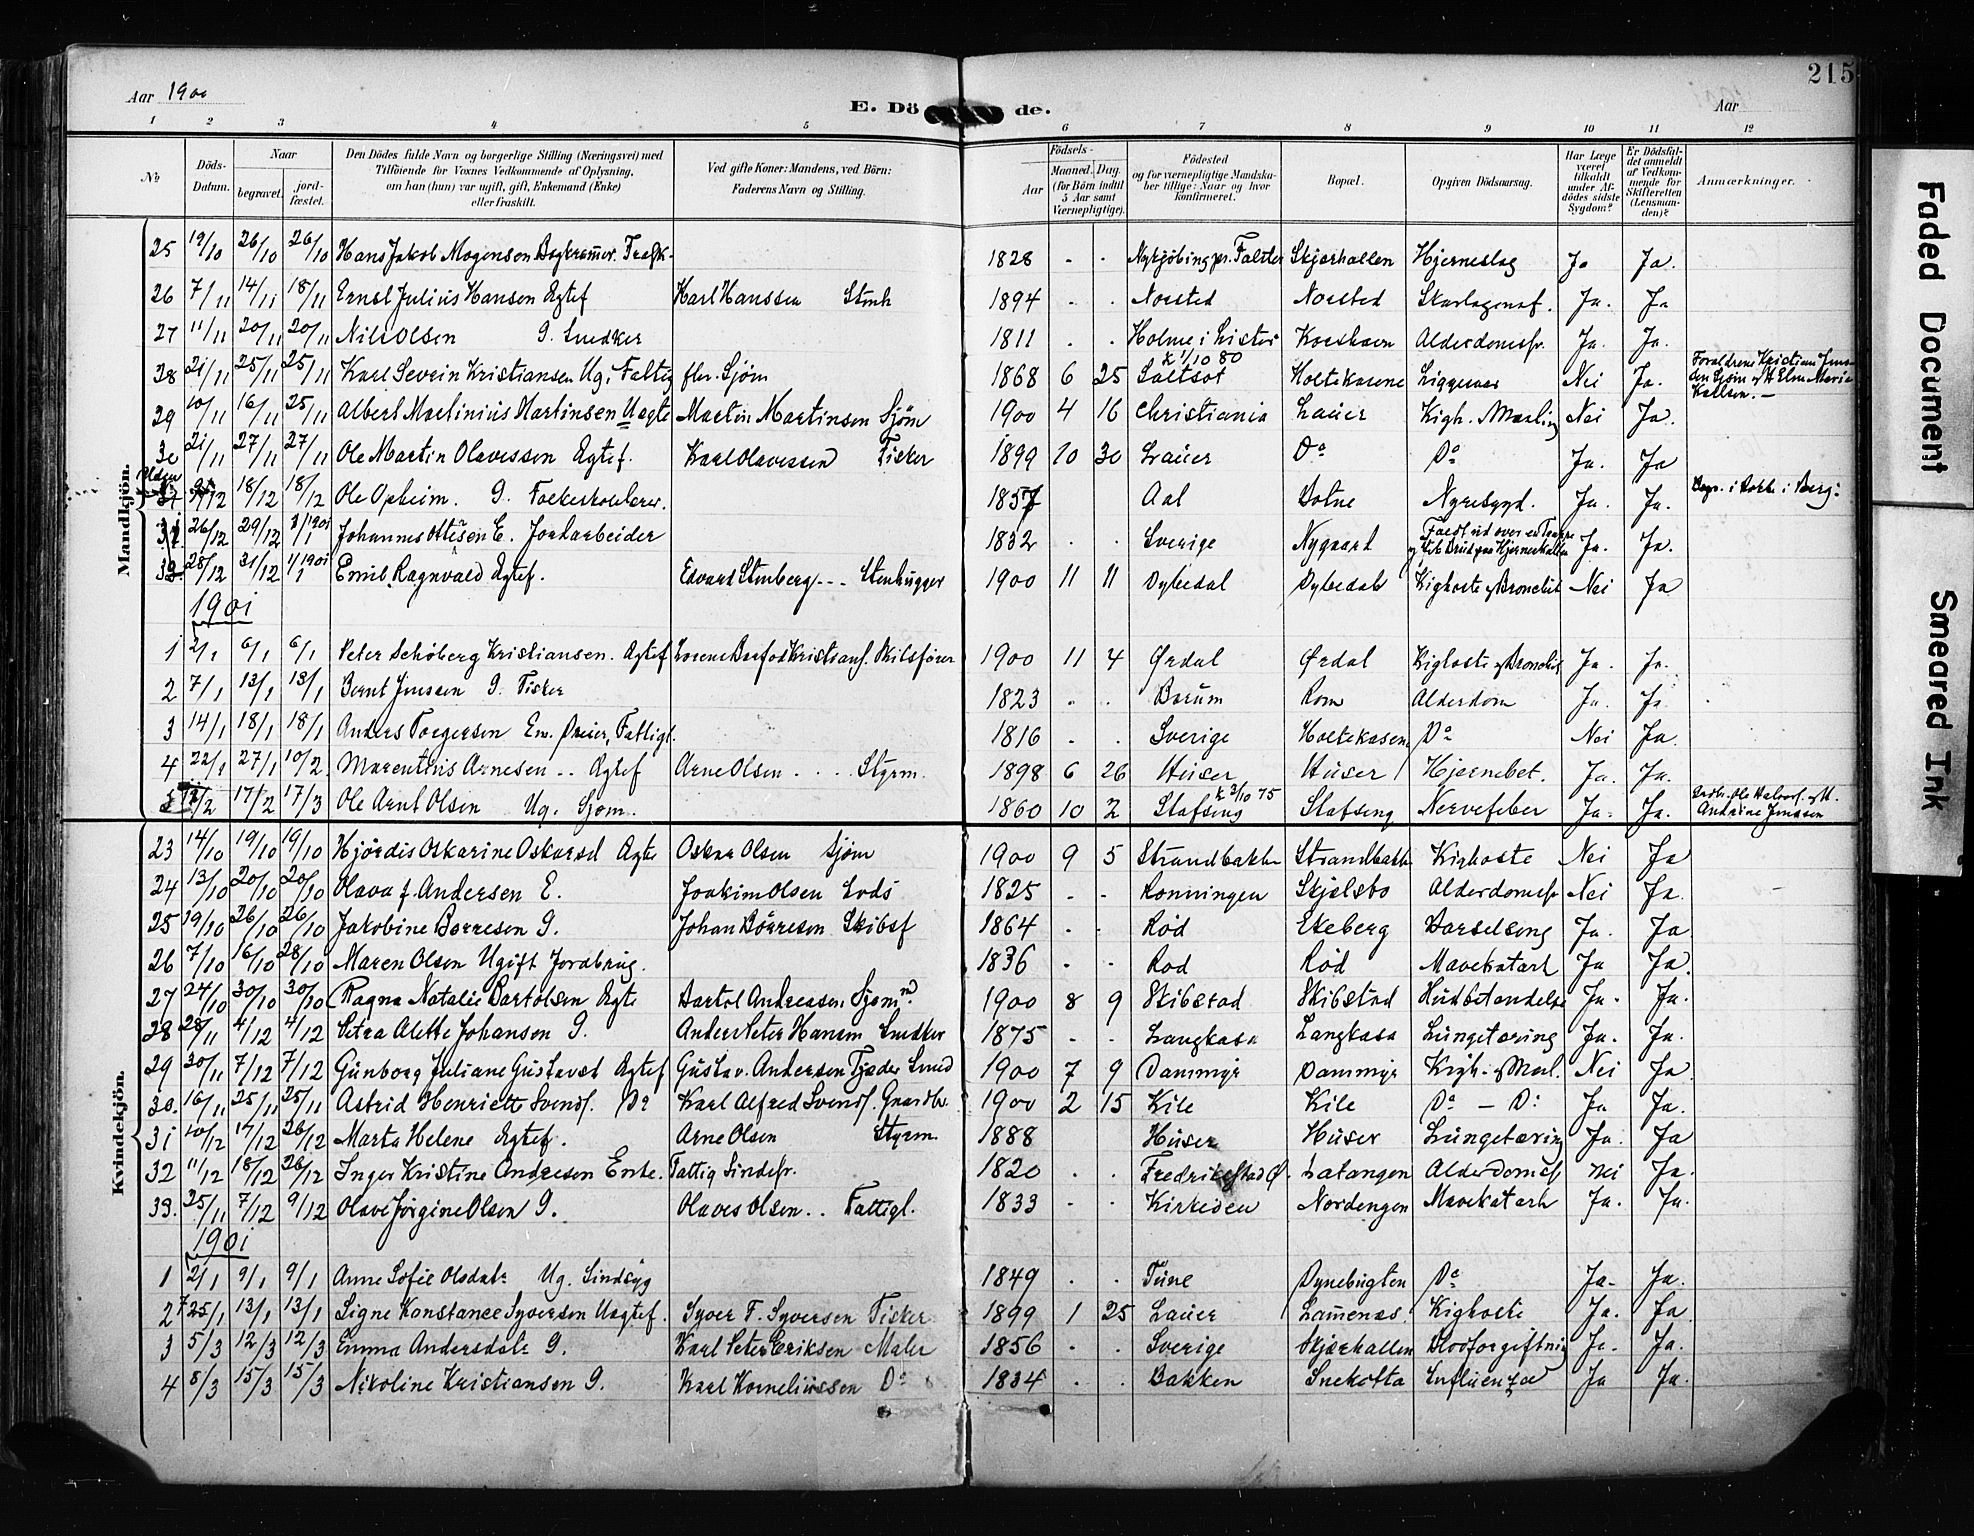 Aar 1900
E. Dö de.
Aar
215
1 2 3 4 5 6 7 8 9 10 11 12
No
Döds-Datum.
Naar
begravet.
jord-fæstet.
Den Dödes fulde Navn og borgerlige Stilling (Næringsvei) med
Tilföiende for Voxnes Vedkommende af Oplysning,
om han (hun) var ugift, gift, Enkemand (Enke)
eller fraskilt.
Ved gifte Koner: Mandens, ved Börn:
Faderens Navn og Stilling.
Födsels-
Aar
Maaned. Dag.
(for Börn indtil
5 Aar samt
Værnepligtige).
Födested
og for værnepligtige Mandska-
ber tillige: Naar og hvor
konfirmeret.
Bopæl.
Opgiven Dödsaarsag.
Har Læge
været
tilkaldt
under Af-
dödes sidste
Sygdom?
Er Dödsfal-
det anmeldt
af Vedkom-
mende for
Skifteretten
(Lensman-
den)?
Anmærkninger.
Mandkjön.
25 19/10 26/10 26/10 Hans Jakob Mogensen 1828 - - Nykjöbing pr. Falster Skjærhallen Hjerneslag Ja Ja.
26 7/11 14/11 18/11 Ernst Julius Hansen Ægtef Karl Hanssen Stenh 1894 - - Norsted Norsted Skarlagensf. Ja. Ja
27 11/11 20/11 20/11 Nils Olsen G. Snedker 1811 - - Holme i Lister Korshavn Alderdomssv. Ja. Ja.
28 21/11 25/11 25/11 Karl Severin Kristiansen Ug. Fattig flv. Sjöm 1868 6 25 k 1/10 80 Holtekasene Liggesaar Nei Ja. Forældrene Kristian
29 10/11 16/11 25/11 Albert Martinius Martinsen Uægte Martin Martinsen Sjöm 1900 4 16 Christiania Lauer Kigh. Mæsling Nei Ja.
30 21/11 27/11 27/11 Ole Martin Olavessen Ægtef. Karl Olavessen Fisker 1899 10 30 Lauer Do Do Ja. Ja
18/12 18/12 Ole Opheim. G. Folkeskolelærer. 1857 Aal Nyresygd. Ja. Ja. Begr. i Rokke i Berg.
26/12 29/12 3/1 1901 Johannes Ottesen E. Jordarbeider 1832 - - Sverige Nygaard Faldt ud over en Trappe Ja. Ja.
28/12 31/12 4/1 1901 Emil Ragnvald Ægtef. Edvard Stenberg - - - Stenhugger 1900 11 11 Dybedal Dybedal Kighoste & Bronchit Nei Ja
1901
1 2/1 6/1 6/1 Peter Schöberg Kristiansen. Ægtef Skibsförer 1900 11 4 Ørdal Ørdal Kighoste & Bronchit Ja. Ja.
2 7/1 13/1 13/1 Bernt Jenssen G. Fisker 1823 - - Bærum Rom Alderdom Ja. Ja
3 14/1 18/1 18/1 Anders Torgersen Em. Dreier, Fattigl. 1816 - - Sverige Holtekasene Do Nei Ja.
4 22/1 27/1 10/2 Marentius Arnesen - - Ægtef Arne Olsen . . . . Styrm. 1898 6 26 Huser Huser Hjernebet. Ja. Ja.
5 17/2 17/3 Ole Arnt Olsen Ug. Sjöm. 1860 10 2 k 3/10 75 Stafseng Stafseng Nervefeber Ja. Ja. Andrine Jensen
Kvindekjön.
23 14/10 19/10 19/10 Hjördis Oskarine Oskarsd Ægte Oskar Olsen Sjöm 1900 9 5 Strandbakke Strandbakke Kighoste Nei Ja
24 13/10 20/10 20/10 Olava f. Andersen E. Joakim Olsen Lods 1825 - - Rönningen Skjelsbo Alderdomssv Nei Ja.
25 19/10 26/10 26/10 Jakobine Börresen G. Johan Börresen Skibsf 1864 - - Röd Ekeberg Barselseng Ja. Ja
26 7/10 16/10 28/10 Maren Olsen Ugift Jordbrug. 1836 - - Röd Röd Mavekatarh Ja Ja.
27 24/10 30/10 30/10 Ragna Natalie Bartolsen Ægte Bartol Andreasen Sjömnd. 1900 8 9 Skibstad Skibstad Hudbetændelse Ja. Ja.
28 28/11 4/12 4/12 Petra Alette Johansen G. Anders Peter Hansen Snedker 1875 - - Langkasa Langkasa Lungetæring Ja. Ja.
29 30/11 7/12 7/12 Gunborg Juliane Gustavsd Ægtef Gustav. Andersen Fjæder Smed 1900 7 9 Dammyr Dammyr Kigh. & Mæsl. Nei Ja
30. 16/11 25/11 25/11 Astrid Henriette Svends. Do Karl Alfred Svends. Gaardbr. 1900 2 15 Kile Kile Do - Do Ja Ja.
31 10/12 17/12 26/12 Marta Helene Ægtef. Arne Olsen Styrm. 1888 Huser Huser Lungetæring Ja. Ja
32 11/12 18/12 26/12 Inger Kristine Andresen Enke. Fattig Sindssv. 1820 . . Fredrikstad Ø. Botangen Alderdomssv Nei Ja.
33. 25/11 7/12 9/12 Olave Jörgine Olsen G. Olaves Olsen . . Fattigl. 1833 - - Kirköen Nordengen Mavekatarh Ja. Ja.
1901
1 2/1 9/1 9/1 Anne Sofie Olsdatr Ug. Sindsyg 1849 - - Tune Dynebugten Do Ja. Ja.
2 13/1 13/1 Signe Konstance Syversen Uægtef. Syver F. Syversen Fisker 1899 1 25 Lauer Lauernes. Kighoste Ja. Ja
3 5/3 12/3 12/3 Emma Andersdatr G. Karl Peter Eriksen Maler 1856 - - Sverige Skjærhallen Blodforgiftning Ja. Ja.
4 8/3 15/3 15/3 Nikoline Kristiansen G. Karl Korneliussen Do 1834 - - Bakken Snekotta Influenza Ja Ja.
Faded Document
Smeared Ink